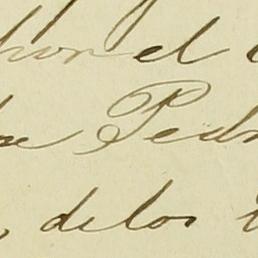 por el
de Pedr
, de los